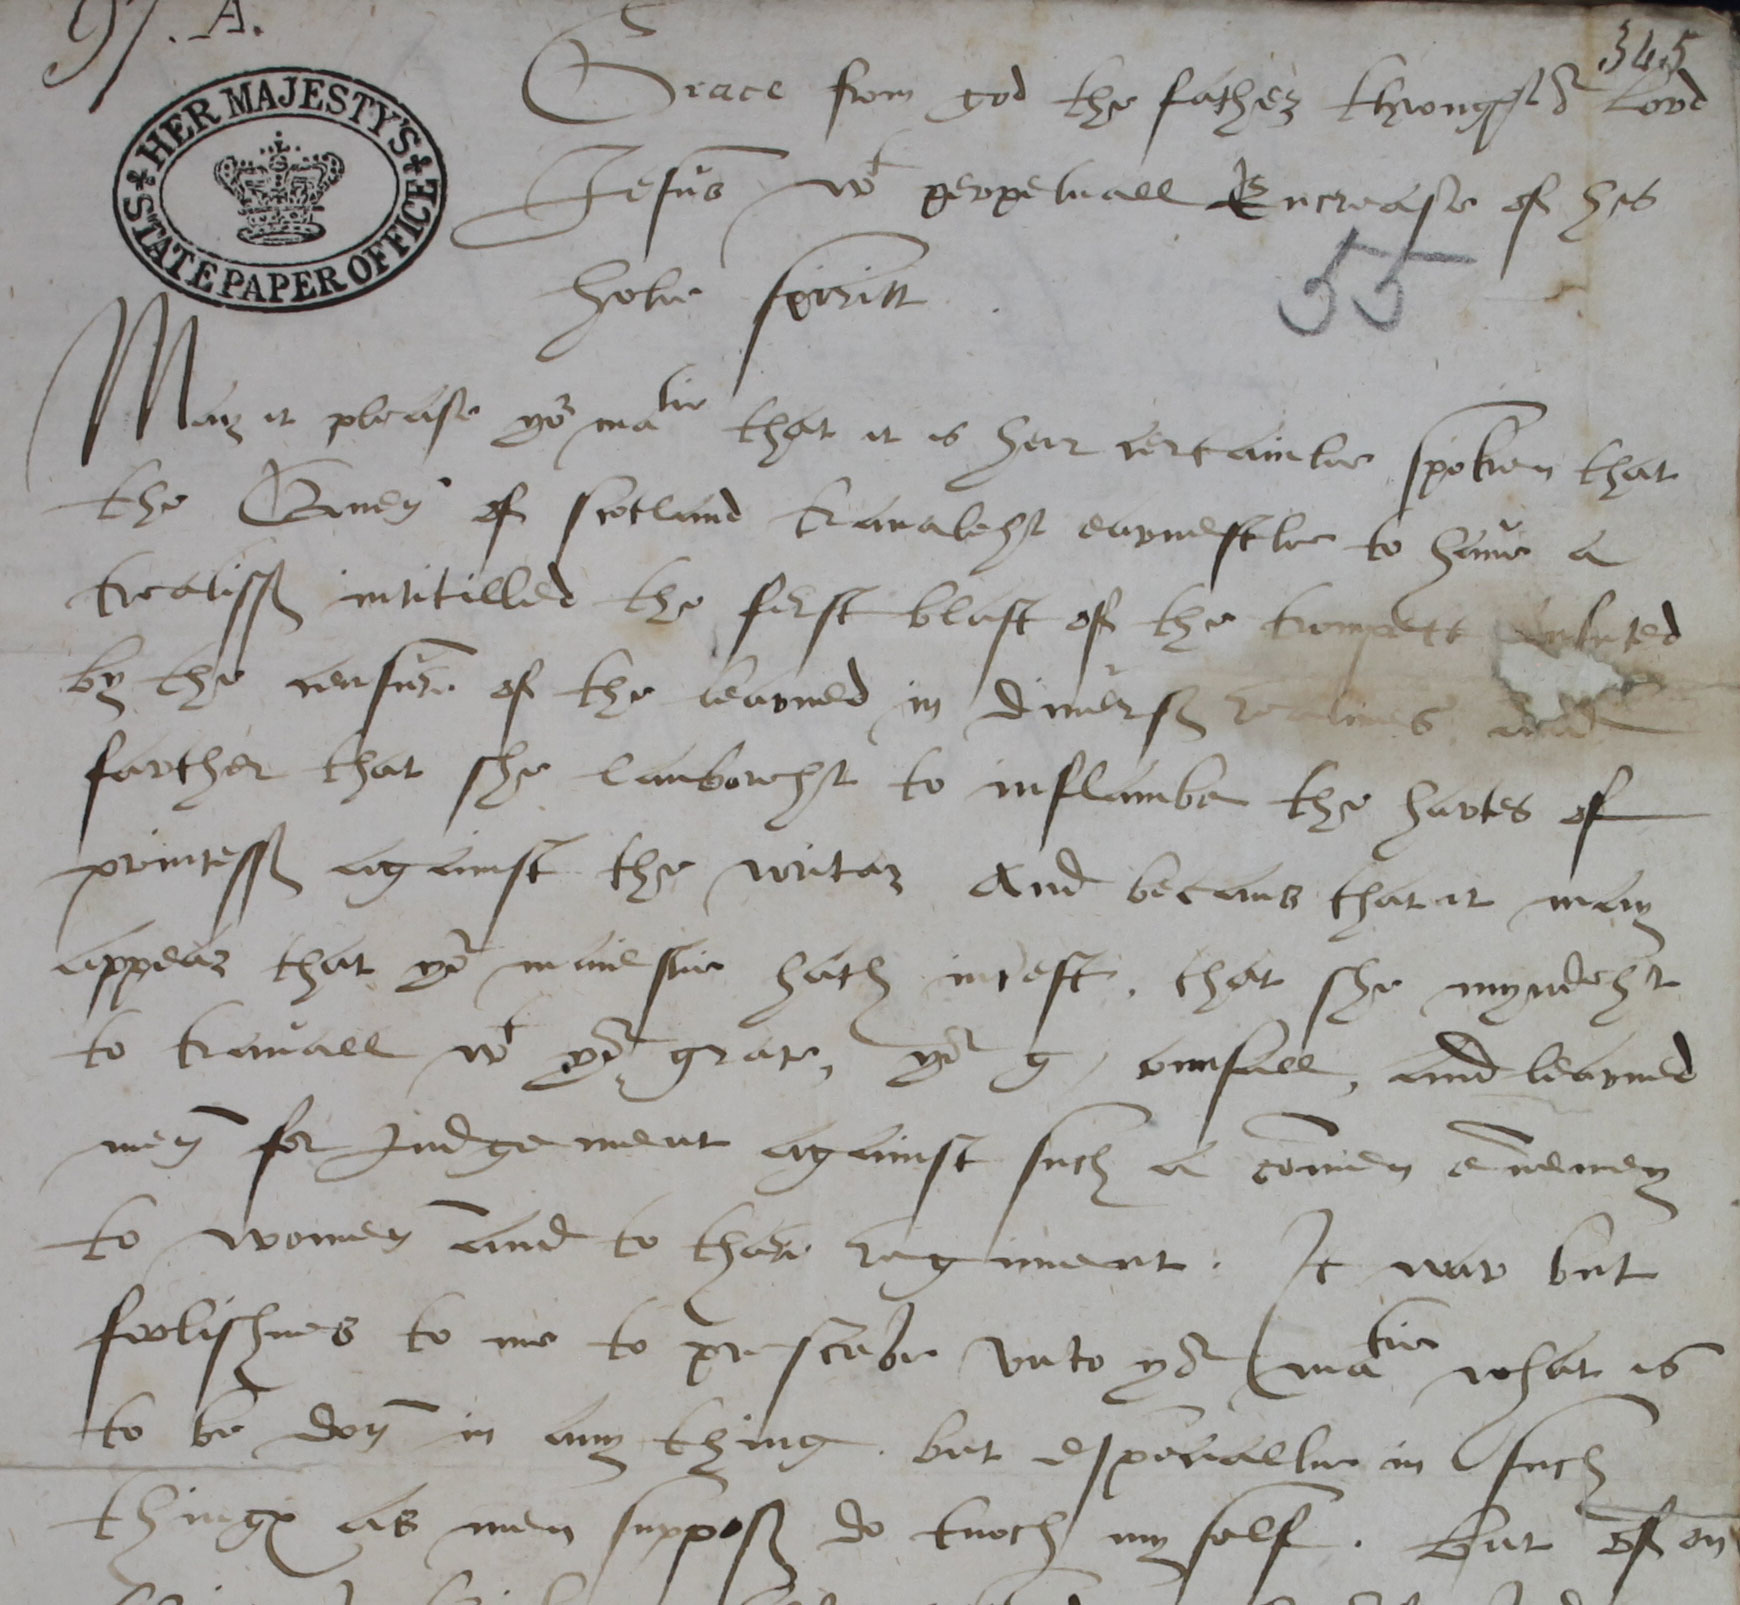 97. A.
345
HER MAJESTY'S STATE PAPER OFFICE
Grace from god the father throught Lord
Jesus wt perpetuall Encrease of his
holie spiritt.
55
May it please yor matie that it is heir certainlie spoken that
the Quen of scotland travaleht earnestlie to have a
treatiss intitilled the ferst blast of the trompett
by the censure of the learned in diverss realmes and
farther that she lauboreht to inflambe the hartes of
princess against the writar And becaus that it may
appear that yor maiestie hath intrest, that she myndeht
to travall wt yor grace, yor g, counsall, and learned
men for Judgement against such a comen ennemey
to women and to thare regiment. It war but
foolishnes to me to prescribe unto yor matie what is
to be don in any thing but especiallie in such
things as men supposs do tuoch my self. But of on